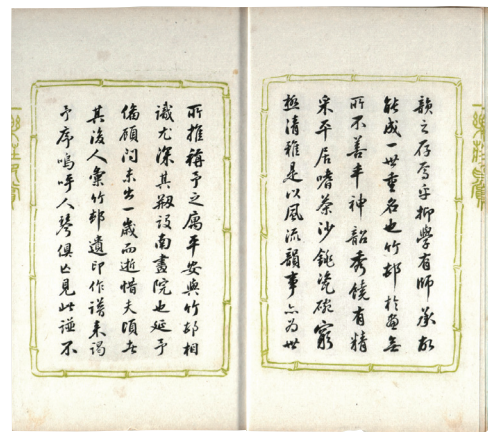 韻之存焉乎抑學有師承故
能成一世重名也竹邨於畫無
所不善丰神韶秀饒有精
采平居嗜茶沙銚瓷碗窮
極清雅是以風流韻事亦為世
所推稱予之寓平安與竹邨相
識尤深其剏設南畫院也延予
備顧問未出一歲而逝惜夫頃者
其後人彙竹邨遺印作譜來謁
予序嗚呼人琴俱亡見此譜不